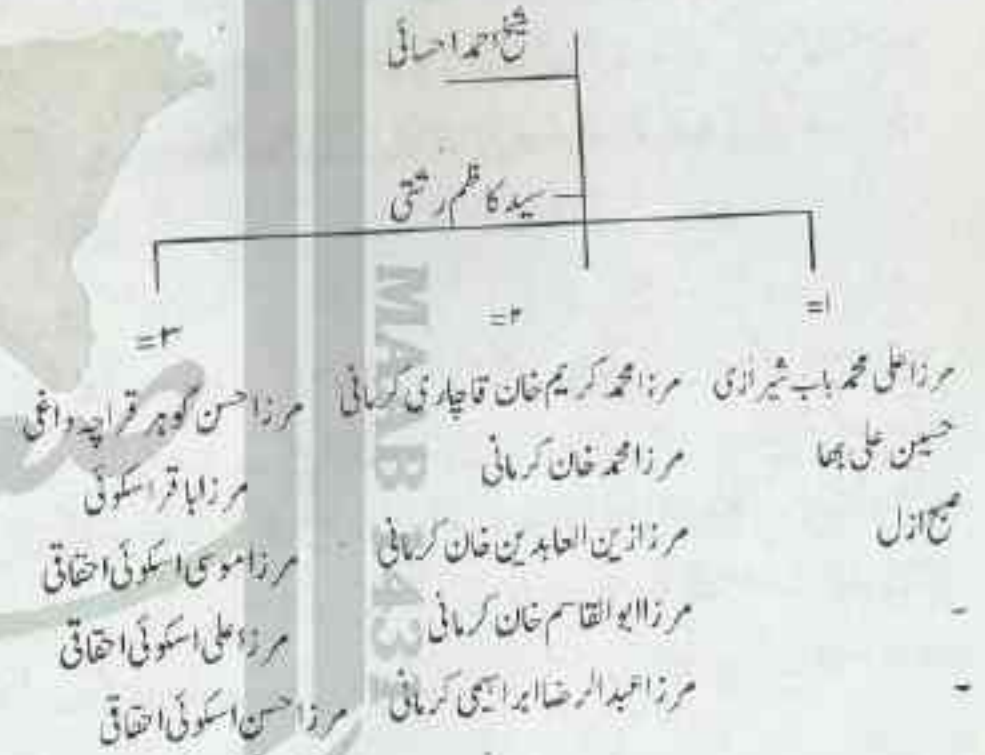 شیخ احمد احسائی
سید کاظم رشتی
۱=
۲=
۳=
مرزا علی محمد باب شیرازی
حسین علی بھا
صبح ازل
-
-
مرزا محمد کریم خان قاچاری کرمانی
مرزا محمد خان کرمانی
مرزا زین العابدین خان کرمانی
مرزا ابو القاسم خان کرمانی
مرزا عبد الرضا ابراہیمی کرمانی
مرزا حسن گوہر قراچہ داغی
مرزا باقر اسکوئی
مرزا موسی اسکوئی احقاقی
مرزا علی اسکوئی احقاقی
مرزا حسن اسکوئی احقاقی
MAAB 143